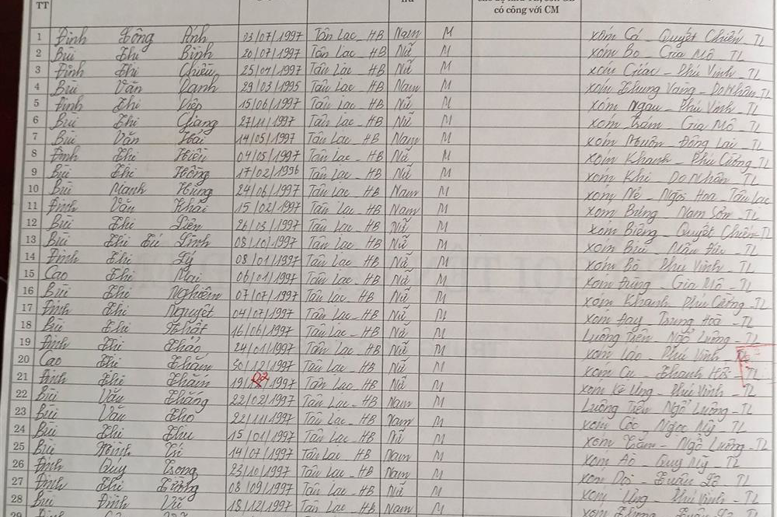 TT
có công với CM
1 Đinh Đồng Anh 23/07/1997 Tân Lạc - HB Nam M xóm Cá - Quyết Chiến - TL
2 Bùi Thị Bình 20/07/1997 Tân Lạc - HB Nữ M xóm Bo - Gia Mô - TL
3 Đinh Thị Chiều 25/07/1997 Tân Lạc - HB Nữ M xóm Giác - Phú Vinh - TL
4 Bùi Văn Danh 29/03/1995 Tân Lạc - HB Nam M xóm Thung Vang - Do Nhân - TL
5 Đinh Thị Diệp 15/06/1997 Tân Lạc - HB Nữ M xóm Ngau - Phú Vinh - TL
6 Bùi Thị Giang 27/11/1997 Tân Lạc - HB Nữ M xóm Trám - Gia Mô - TL
7 Bùi Văn Hải 14/05/1997 Tân Lạc - HB Nam M xóm Muôn - Đông Lai - TL
8 Đinh Thị Hiền 04/05/1997 Tân Lạc - HB Nữ M xóm Khanh - Phú Cường - TL
9 Bùi Thị Hồng 17/02/1996 Tân Lạc - HB Nữ M xóm Khi - Do Nhân - TL
10 Bùi Mạnh Hùng 24/06/1997 Tân Lạc - HB Nam M xóm Mè - Ngòi Hoa - Tân Lạc
11 Đinh Văn Khải 15/02/1997 Tân Lạc - HB Nam M xóm Bưng - Nam Sơn - TL
12 Bùi Thị Liên 26/03/1997 Tân Lạc - HB Nữ M xóm Biêng - Quyết Chiến - TL
13 Bùi Thị Tú Linh 08/10/1997 Tân Lạc - HB Nữ M xóm - TL
14 Đinh Thị Lý 08/01/1997 Tân Lạc - HB Nữ M xóm Bo - Phú Vinh - TL
15 Cao Thị Mai 06/01/1997 Tân Lạc - HB Nữ M xóm Đừng - Gia Mô - TL
16 Bùi Thị Nghiêm 07/07/1997 Tân Lạc - HB Nữ M xóm Khanh - Phú Cường - TL
17 Đinh Thị Nguyệt 04/07/1997 Tân Lạc - HB Nữ M xóm Đay - Trung Hoà - TL
18 Bùi Thị Nhất 16/06/1997 Tân Lạc - HB Nữ M Luông Tiên - Ngổ Luông - TL
19 Đinh Thị Thảo 24/01/1997 Tân Lạc - HB Nữ M xóm Lao - Phú Vinh - TL
20 Cao Thị Thắm 30/11/1997 Tân Lạc - HB Nữ M xóm Cu - Thanh Hối - TL
21 Đinh Thị Thắm 19/ /1997 Tân Lạc - HB Nữ M xóm Kè Ưng - Phú Vinh - TL
22 Bùi Văn Thăng 22/02/1997 Tân Lạc - HB Nam M Luông Tiên - Ngổ Luông - TL
23 Bùi Văn Thọ 22/11/1997 Tân Lạc - HB Nam M xóm Cóc - Ngọc Mỹ - TL
24 Bùi Thị Thu 15/01/1997 Tân Lạc - HB Nữ M xóm - Ngổ Luông - TL
25 Bùi Minh Tú 14/07/1997 Tân Lạc - HB Nam M xóm Ào - Quy Mỹ - TL
26 Đinh Quy Trong 23/10/1997 Tân Lạc - HB Nam M xóm - TL
27 Đinh Thị Tường 08/09/1997 Tân Lạc - HB Nữ M xóm Ưng - Phú Vinh - TL
28 Bùi Đình Vũ 18/12/1997 Tân Lạc - HB Nam M xóm - TL